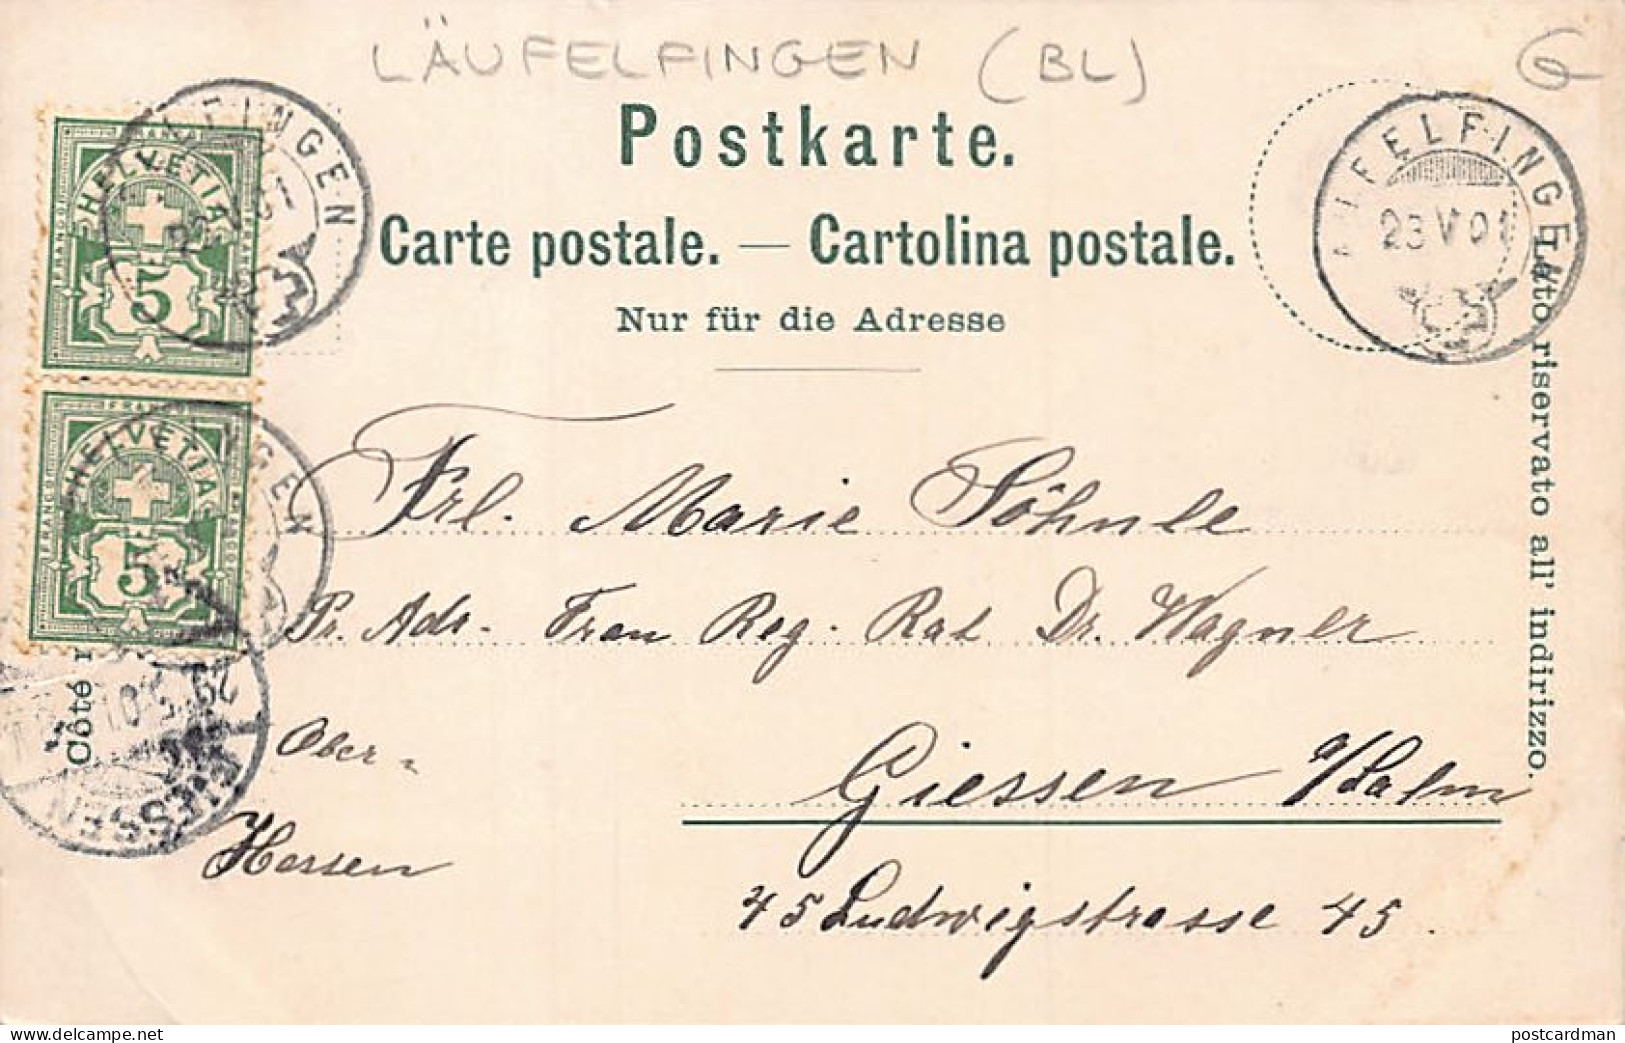 LÄUFELFINGEN (BL)
Postkarte.
Carte postale. — Cartolina postale.
Nur für die Adresse
FRANCO
HELVETIA
5
FRANCO
HELVETIA
5
INGEN
UFELFINGEN
23 V 01
Lato riservato all' indirizzo.
Côté r
GIESSEN
Frl. Marie Söhnle
Pr. Adr. Frau Reg. Rat Dr. Wagner
Giessen a/Lahn
Ober-
Hessen
45 Ludwigstrasse 45.
Delcampe.net
postcardman